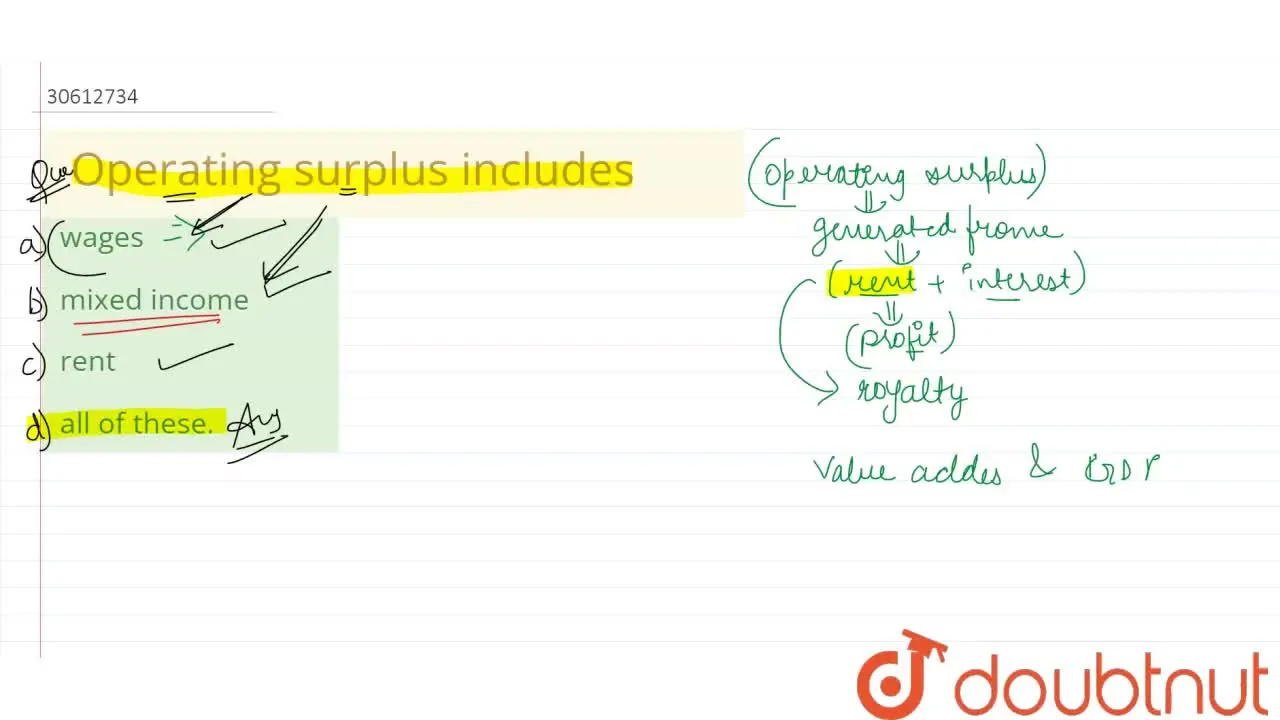 30612734
Que Operating surplus includes
a) wages
b) mixed income
c) rent
d) all of these. Ans
(operating surplus)
generated frome
(rent + interest)
(profit)
royalty
value addes & GDP
doubtnut